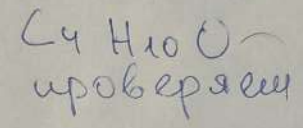 C4 H10 O –
проверяем